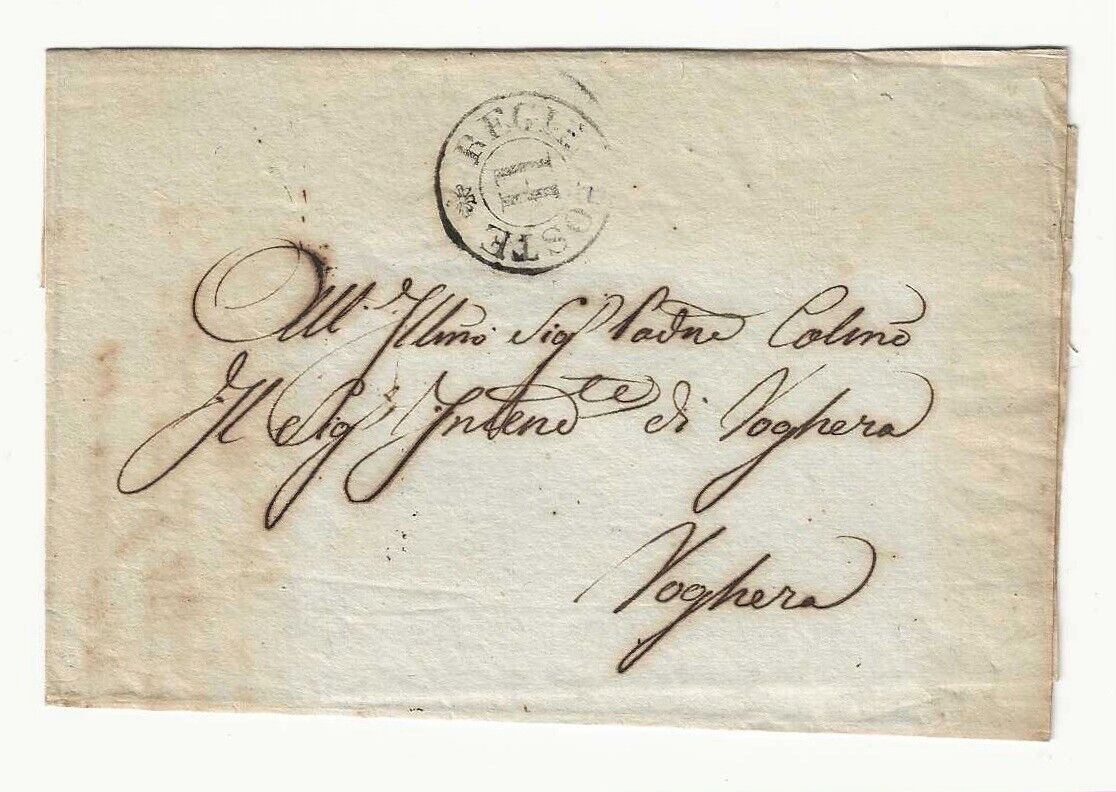 REGIE POSTE
II
All'. Illmo Sig Padne Colmo
Il Sig Intend te di Voghera
Voghera